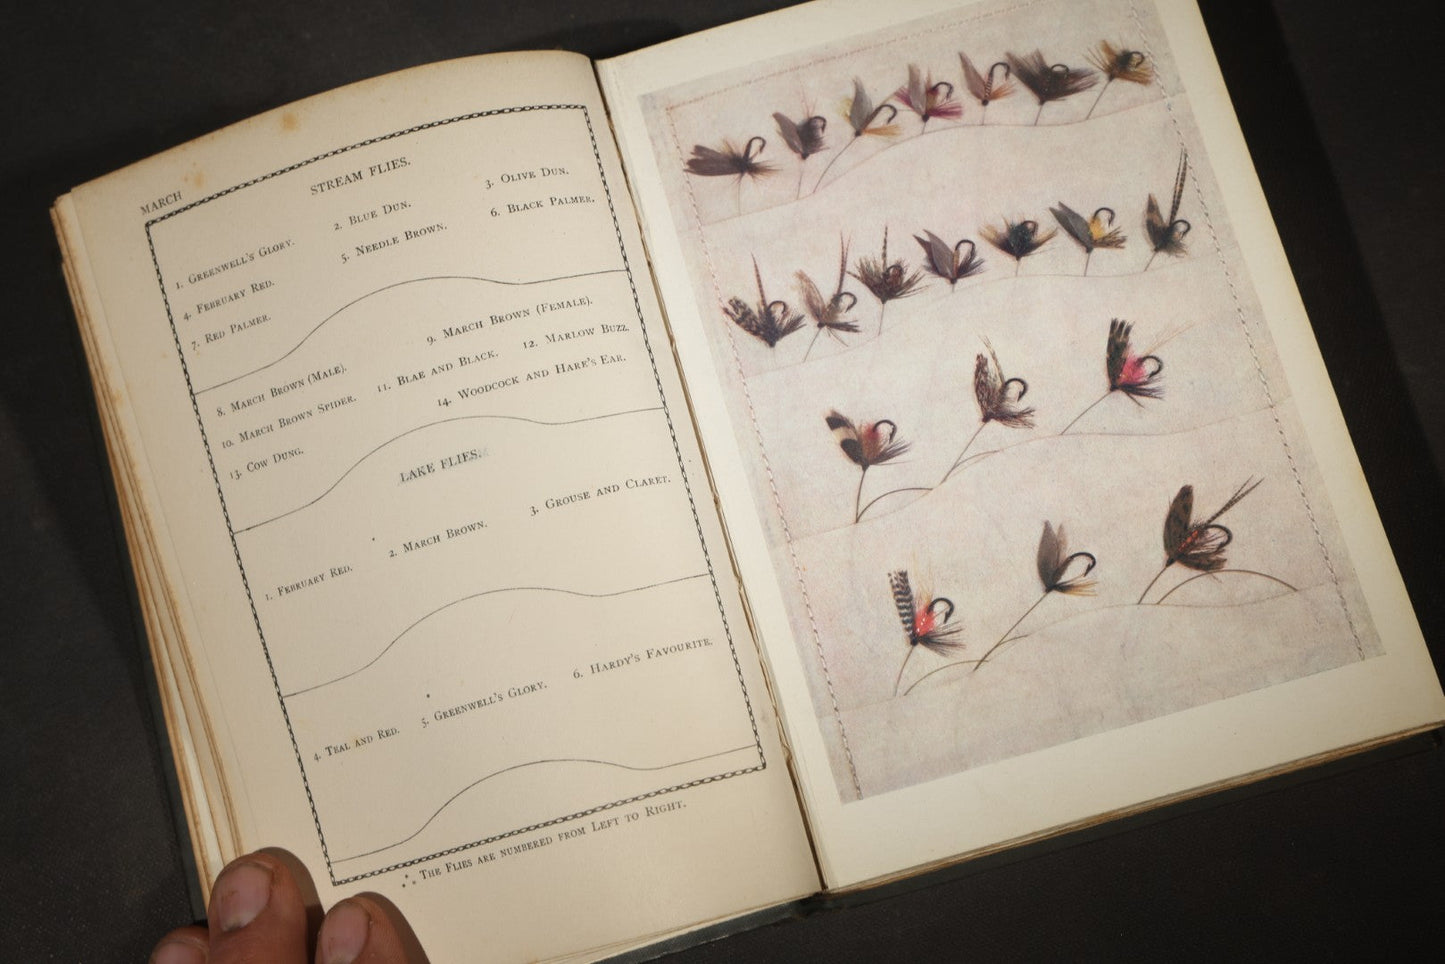 MARCH
STREAM FLIES.
1. Greenwell's Glory. 2. Blue Dun. 3. Olive Dun.
4. February Red. 5. Needle Brown. 6. Black Palmer.
7. Red Palmer.
8. March Brown (Male). 9. March Brown (Female).
10. March Brown Spider. 11. Blae and Black. 12. Marlow Buzz.
13. Cow Dung. 14. Woodcock and Hare's Ear.
LAKE FLIES.
1. February Red. 2. March Brown. 3. Grouse and Claret.
4. Teal and Red. 5. Greenwell's Glory. 6. Hardy's Favourite.
⁂ The Flies are numbered from Left to Right.